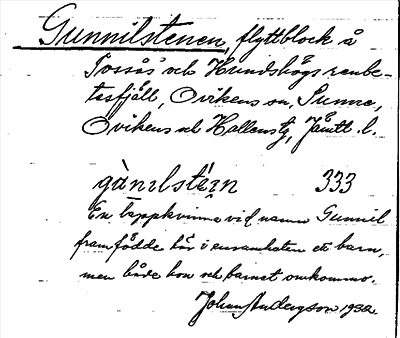 Gunnilstenen, flyttblock å
Tossås' och Hundshögs renbe-
tesfjäll, Ovikens sn, Sunne,
Ovikens och Hallens tg, Jämtl. l.
gànılsté̀ın 333
En lappkvinna vid namn Gunnil
framfödde här i ensamheten ett barn,
men både hon och barnet omkommo.
Johan Andersson 1932